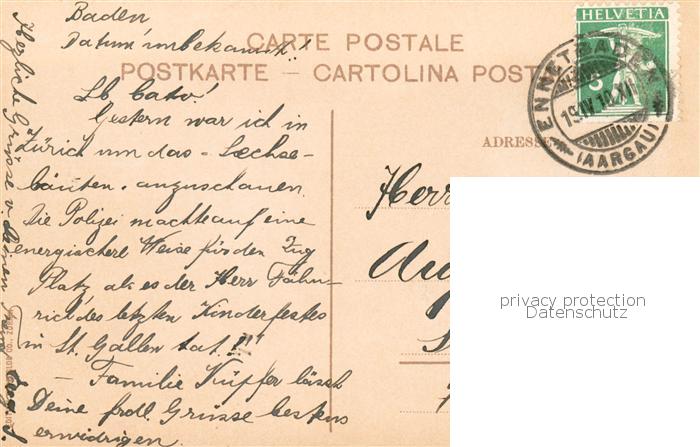 Baden
Datum unbekannt!
CARTE POSTALE
POSTKARTE – CARTOLINA POST
HELVETIA
5
ENNETBADEN
19.IV.10.XI
(AARGAU)
ADRESSE
Lb. Cato!
Gestern war ich in
Zürich um das Sechse-
läuten anzuschauen.
Die Polizei machte auf eine
energischere Weise für den Zug
Platz als es der Herr Fähn-
rich des letzten Kinderfestes
in St. Gallen tat!!!
– Familie Küpfer lässt
Deine frdl. Grüsse bestens
erwidrigen.
Herzliche Grüsse v. Deinem
Herr
privacy protection
Datenschutz